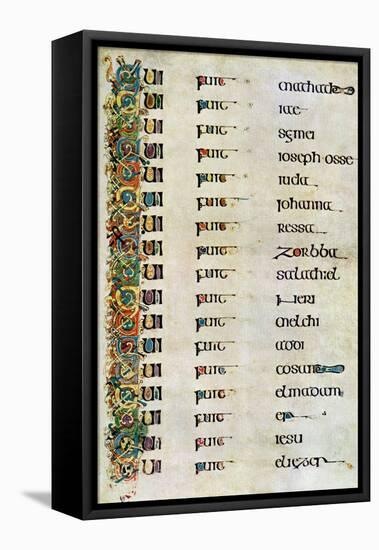 QUI fuit
QUI fuit iae
QUI fuit semei
QUI fuit ioseph osse
QUI fuit iuda
QUI fuit iohanna
QUI fuit ressa
QUI fuit zorbba
QUI fuit salathiel
QUI fuit neri
QUI fuit melchi
QUI fuit addi
QUI fuit cosam
QUI fuit elmadam
QUI fuit er
QUI fuit iesu
QUI fuit eliezer